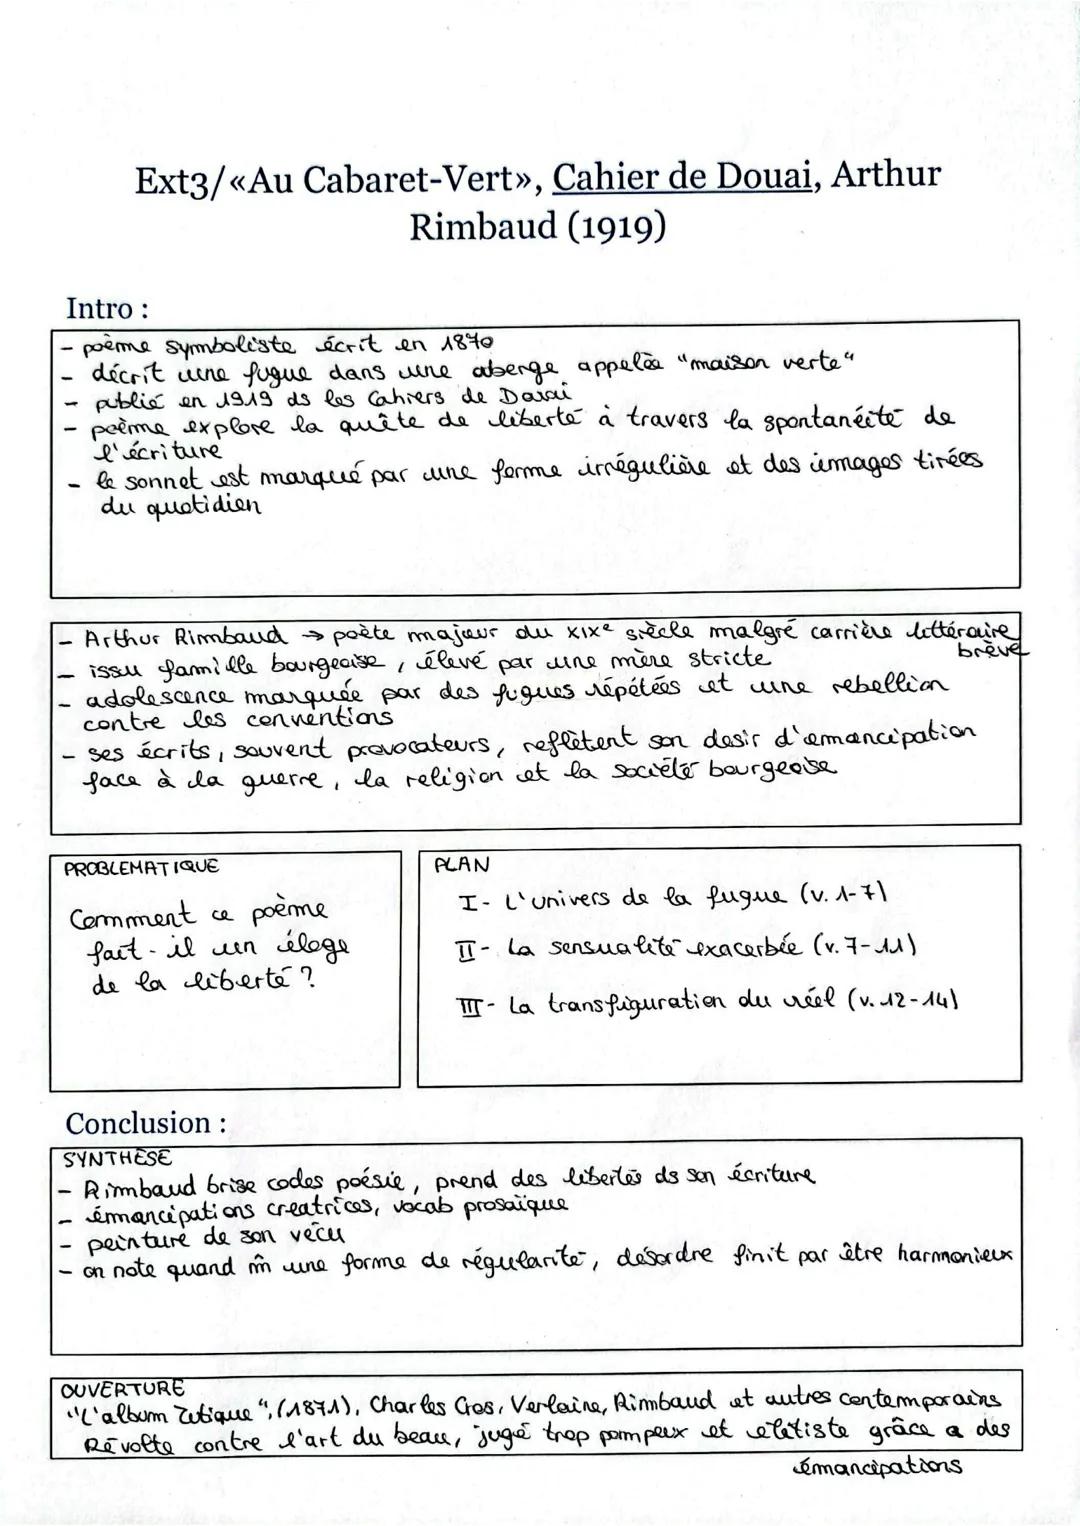 Ext3/«Au Cabaret-Vert», Cahier de Douai, Arthur
Rimbaud (1919)
Intro :
- poème symboliste écrit en 1870
- décrit une fugue dans une aberge appelée "maison verte"
- publié en 1919 ds les Cahiers de Douai
- poème explore la quête de liberté à travers la spontanéité de
l'écriture
- le sonnet est marqué par une forme irrégulière et des images tirées
du quotidien
- Arthur Rimbaud → poète majeur du XIXe siècle malgré carrière littéraire
brève
- issu famille bourgeoise, élevé par une mère stricte
- adolescence marquée par des fugues répétées et une rebellion
contre les conventions
- ses écrits, souvent provocateurs, reflètent son desir d'emancipation
face à la guerre, la religion et la société bourgeoise
PROBLEMATIQUE
Comment ce poème
fait-il un éloge
de la liberté ?
PLAN
I- L'univers de la fugue (v. 1-7)
II- La sensualité exacerbée (v. 7-11)
III- La transfiguration du réel (v. 12-14)
Conclusion :
SYNTHÈSE
- Rimbaud brise codes poésie, prend des libertés ds son écriture
- émancipations creatrices, vocab prosaïque
- peinture de son vécu
- on note quand m̂ une forme de régularité, désordre finit par être harmonieux
OUVERTURE
"L'album Zutique", (1871), Charles Cros, Verlaine, Rimbaud et autres contemporains
Révolte contre l'art du beau, jugé trop pompeux et élitiste grâce a des
émancipations